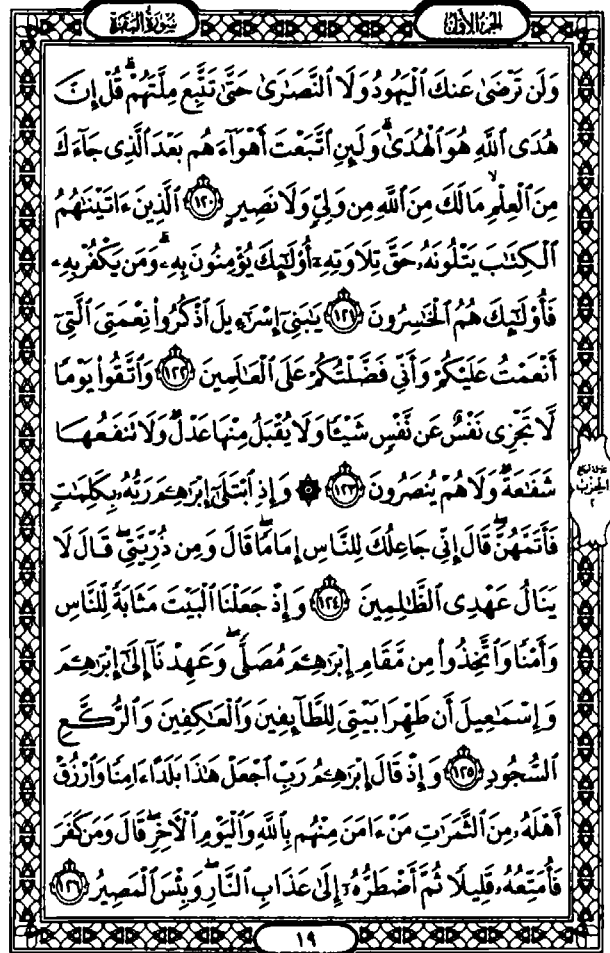 سُورَةُ البَقَرَةِ
الجُزءُ الأَوَّلُ
وَلَن تَرْضَىٰ عَنكَ ٱلْيَهُودُ وَلَا ٱلنَّصَٰرَىٰ حَتَّىٰ تَتَّبِعَ مِلَّتَهُمْ ۗ قُلْ إِنَّ
هُدَى ٱللَّهِ هُوَ ٱلْهُدَىٰ ۗ وَلَئِنِ ٱتَّبَعْتَ أَهْوَآءَهُم بَعْدَ ٱلَّذِى جَآءَكَ
مِنَ ٱلْعِلْمِ ۙ مَا لَكَ مِنَ ٱللَّهِ مِن وَلِىٍّ وَلَا نَصِيرٍ ١٢٠ ٱلَّذِينَ ءَاتَيْنَٰهُمُ
ٱلْكِتَٰبَ يَتْلُونَهُۥ حَقَّ تِلَاوَتِهِۦٓ أُو۟لَٰٓئِكَ يُؤْمِنُونَ بِهِۦ ۗ وَمَن يَكْفُرْ بِهِۦ
فَأُو۟لَٰٓئِكَ هُمُ ٱلْخَٰسِرُونَ ١٢١ يَٰبَنِىٓ إِسْرَٰٓءِيلَ ٱذْكُرُوا۟ نِعْمَتِىَ ٱلَّتِىٓ
أَنْعَمْتُ عَلَيْكُمْ وَأَنِّى فَضَّلْتُكُمْ عَلَى ٱلْعَٰلَمِينَ ١٢٢ وَٱتَّقُوا۟ يَوْمًا
لَّا تَجْزِى نَفْسٌ عَن نَّفْسٍ شَيْـًٔا وَلَا يُقْبَلُ مِنْهَا عَدْلٌ وَلَا تَنفَعُهَا
شَفَٰعَةٌ وَلَا هُمْ يُنصَرُونَ ١٢٣ ۞ وَإِذِ ٱبْتَلَىٰٓ إِبْرَٰهِـۧمَ رَبُّهُۥ بِكَلِمَٰتٍ
فَأَتَمَّهُنَّ ۖ قَالَ إِنِّى جَاعِلُكَ لِلنَّاسِ إِمَامًا ۖ قَالَ وَمِن ذُرِّيَّتِى ۖ قَالَ لَا
يَنَالُ عَهْدِى ٱلظَّٰلِمِينَ ١٢٤ وَإِذْ جَعَلْنَا ٱلْبَيْتَ مَثَابَةً لِّلنَّاسِ
وَأَمْنًا وَٱتَّخِذُوا۟ مِن مَّقَامِ إِبْرَٰهِـۧمَ مُصَلًّى ۖ وَعَهِدْنَآ إِلَىٰٓ إِبْرَٰهِـۧمَ
وَإِسْمَٰعِيلَ أَن طَهِّرَا بَيْتِىَ لِلطَّآئِفِينَ وَٱلْعَٰكِفِينَ وَٱلرُّكَّعِ
ٱلسُّجُودِ ١٢٥ وَإِذْ قَالَ إِبْرَٰهِـۧمُ رَبِّ ٱجْعَلْ هَٰذَا بَلَدًا ءَامِنًا وَٱرْزُقْ
أَهْلَهُۥ مِنَ ٱلثَّمَرَٰتِ مَنْ ءَامَنَ مِنْهُم بِٱللَّهِ وَٱلْيَوْمِ ٱلْـَٔاخِرِ ۖ قَالَ وَمَن كَفَرَ
فَأُمَتِّعُهُۥ قَلِيلًا ثُمَّ أَضْطَرُّهُۥٓ إِلَىٰ عَذَابِ ٱلنَّارِ ۖ وَبِئْسَ ٱلْمَصِيرُ ١٢٦
الحزب
٢
١٩